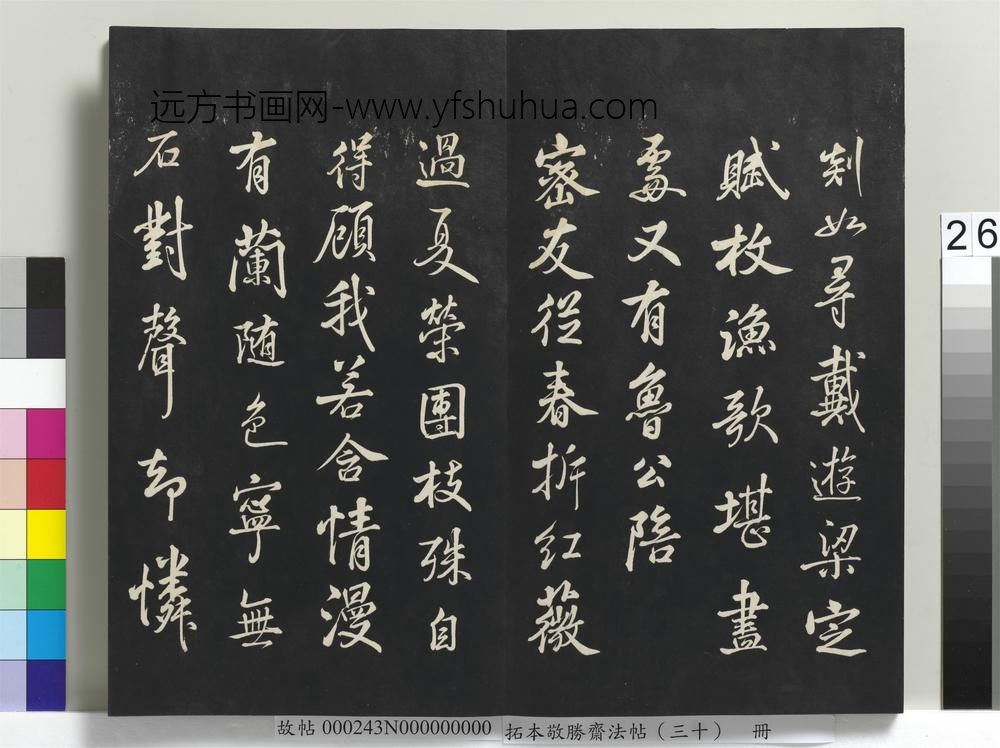 远方书画网-www.yfshuhua.com
剡如尋戴遊梁定
賦枚漁歌堪畫
處又有魯公陪
密友從春拆紅薇
過夏榮團枝殊自
得顧我若含情漫
有蘭随色寧無
石對聲却憐
26
故帖 000243N000000000
拓本敬勝齋法帖（三十） 冊